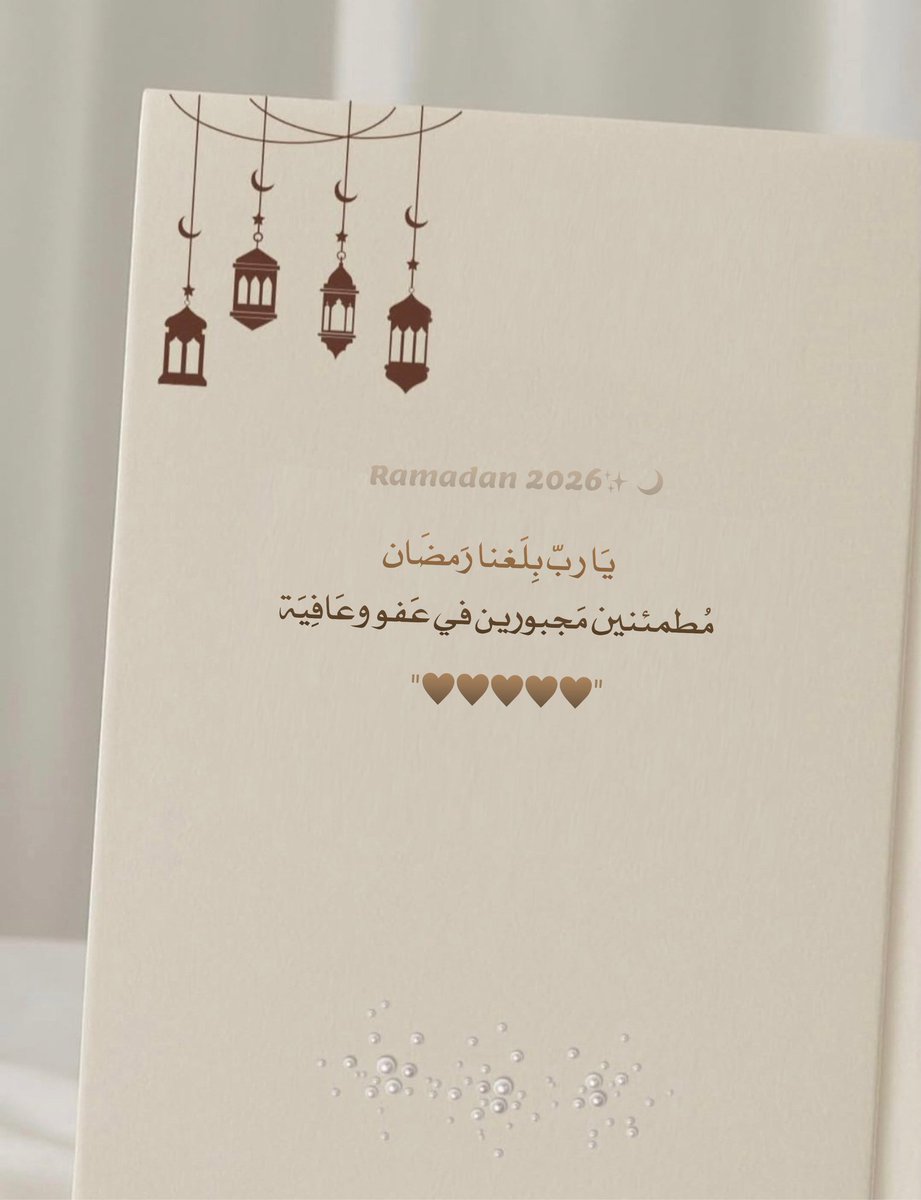 Ramadan 2026✨🌙
يَا ربّ بِلَغنا رَمضَان
مُطمئنين مَجبورين في عَفو وعَافِيَة
"♥♥♥♥♥"